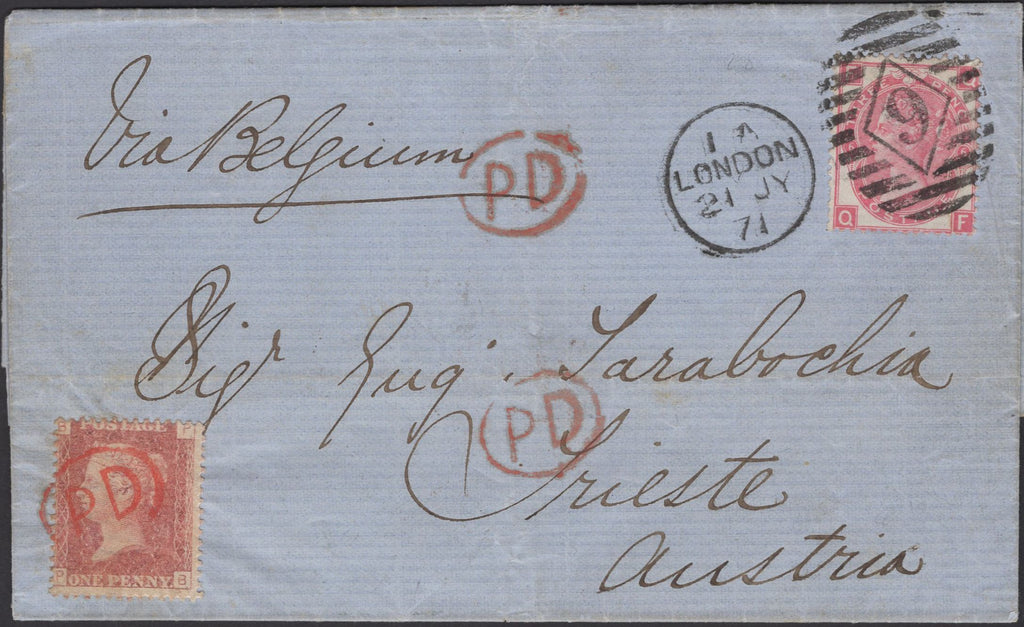 Via Belgium
PD
1 A
LONDON
21 JY
71
9
Q F
Sigr Eug. Tarabochia
PD
Trieste
Austria
B POSTAGE P
PD
P ONE PENNY B